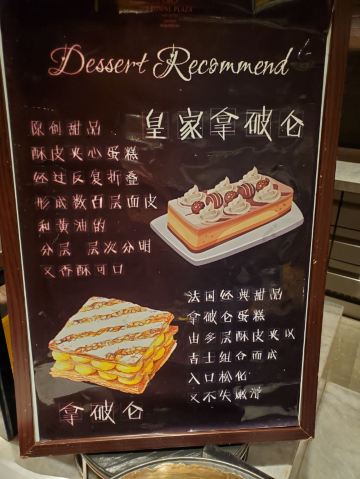 CROWNE PLAZA
Dessert Recommend
皇家拿破仑
原创甜品
酥皮夹心蛋糕
经过反复折叠
形成数百层面皮
和黄油的
分层 层次分明
又香酥可口
法国经典甜品
拿破仑蛋糕
由多层酥皮夹以
吉士组合而成
入口松化
又不失嫩滑
拿破仑